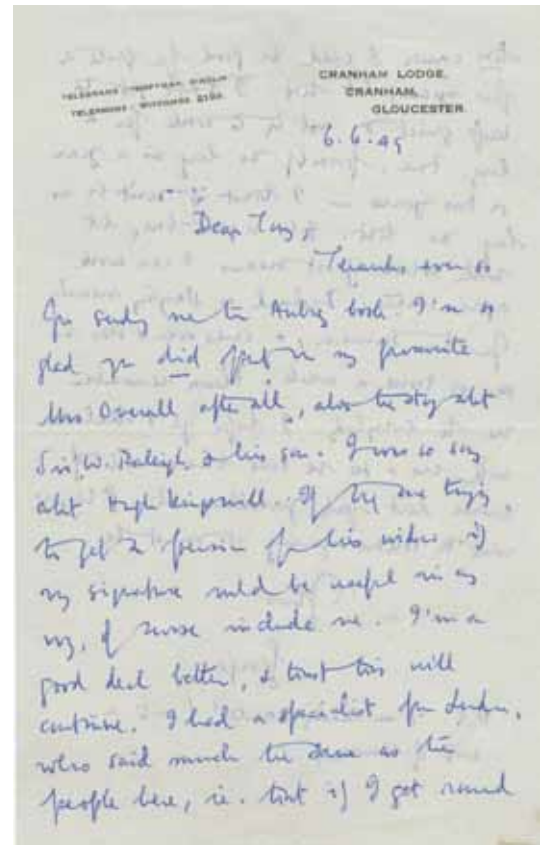 TELEGRAMS : HOFFMAN, BIRDLIP
TELEPHONE : WITCOMBE
CRANHAM LODGE,
CRANHAM,
GLOUCESTER
6.6.49
Dear Tony,
Thanks ever so
for sending me the Aubrey book. I'm so
glad you did put in my favourite
Mrs Overall after all, also the story abt
Sir W. Raleigh & his son. I was so sorry
abt Hugh Kingsmill. If they are trying
to get a pension for his widow, if
my signature would be useful in any
way, of course include me. I'm a
good deal better, & trust this will
continue. I had a specialist from London,
who said much the same as the
people here, ie. that if I get round